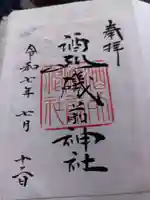 奉拝
酒列磯前神社
令和七年七月
十二日